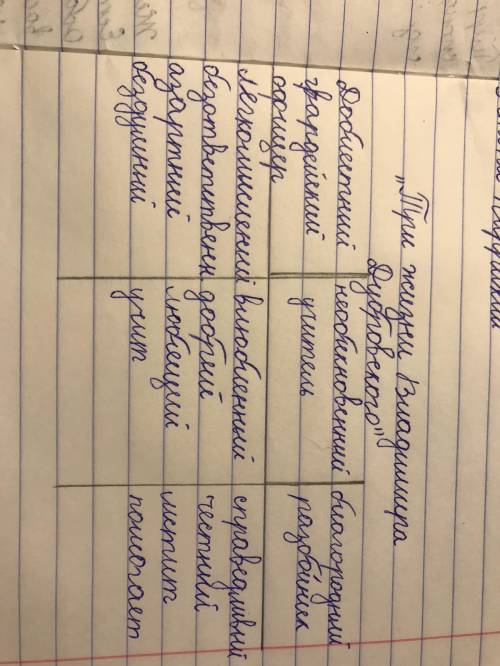 „Три жизни Владимира
Дубровского"
Доблестный необыкновенный благородный
гвардейский учитель разбойник
офицер
легкомысленный влюбленный справедливый
безответственн добрый честный
азартный любещий мстит
бездушный учит помогает